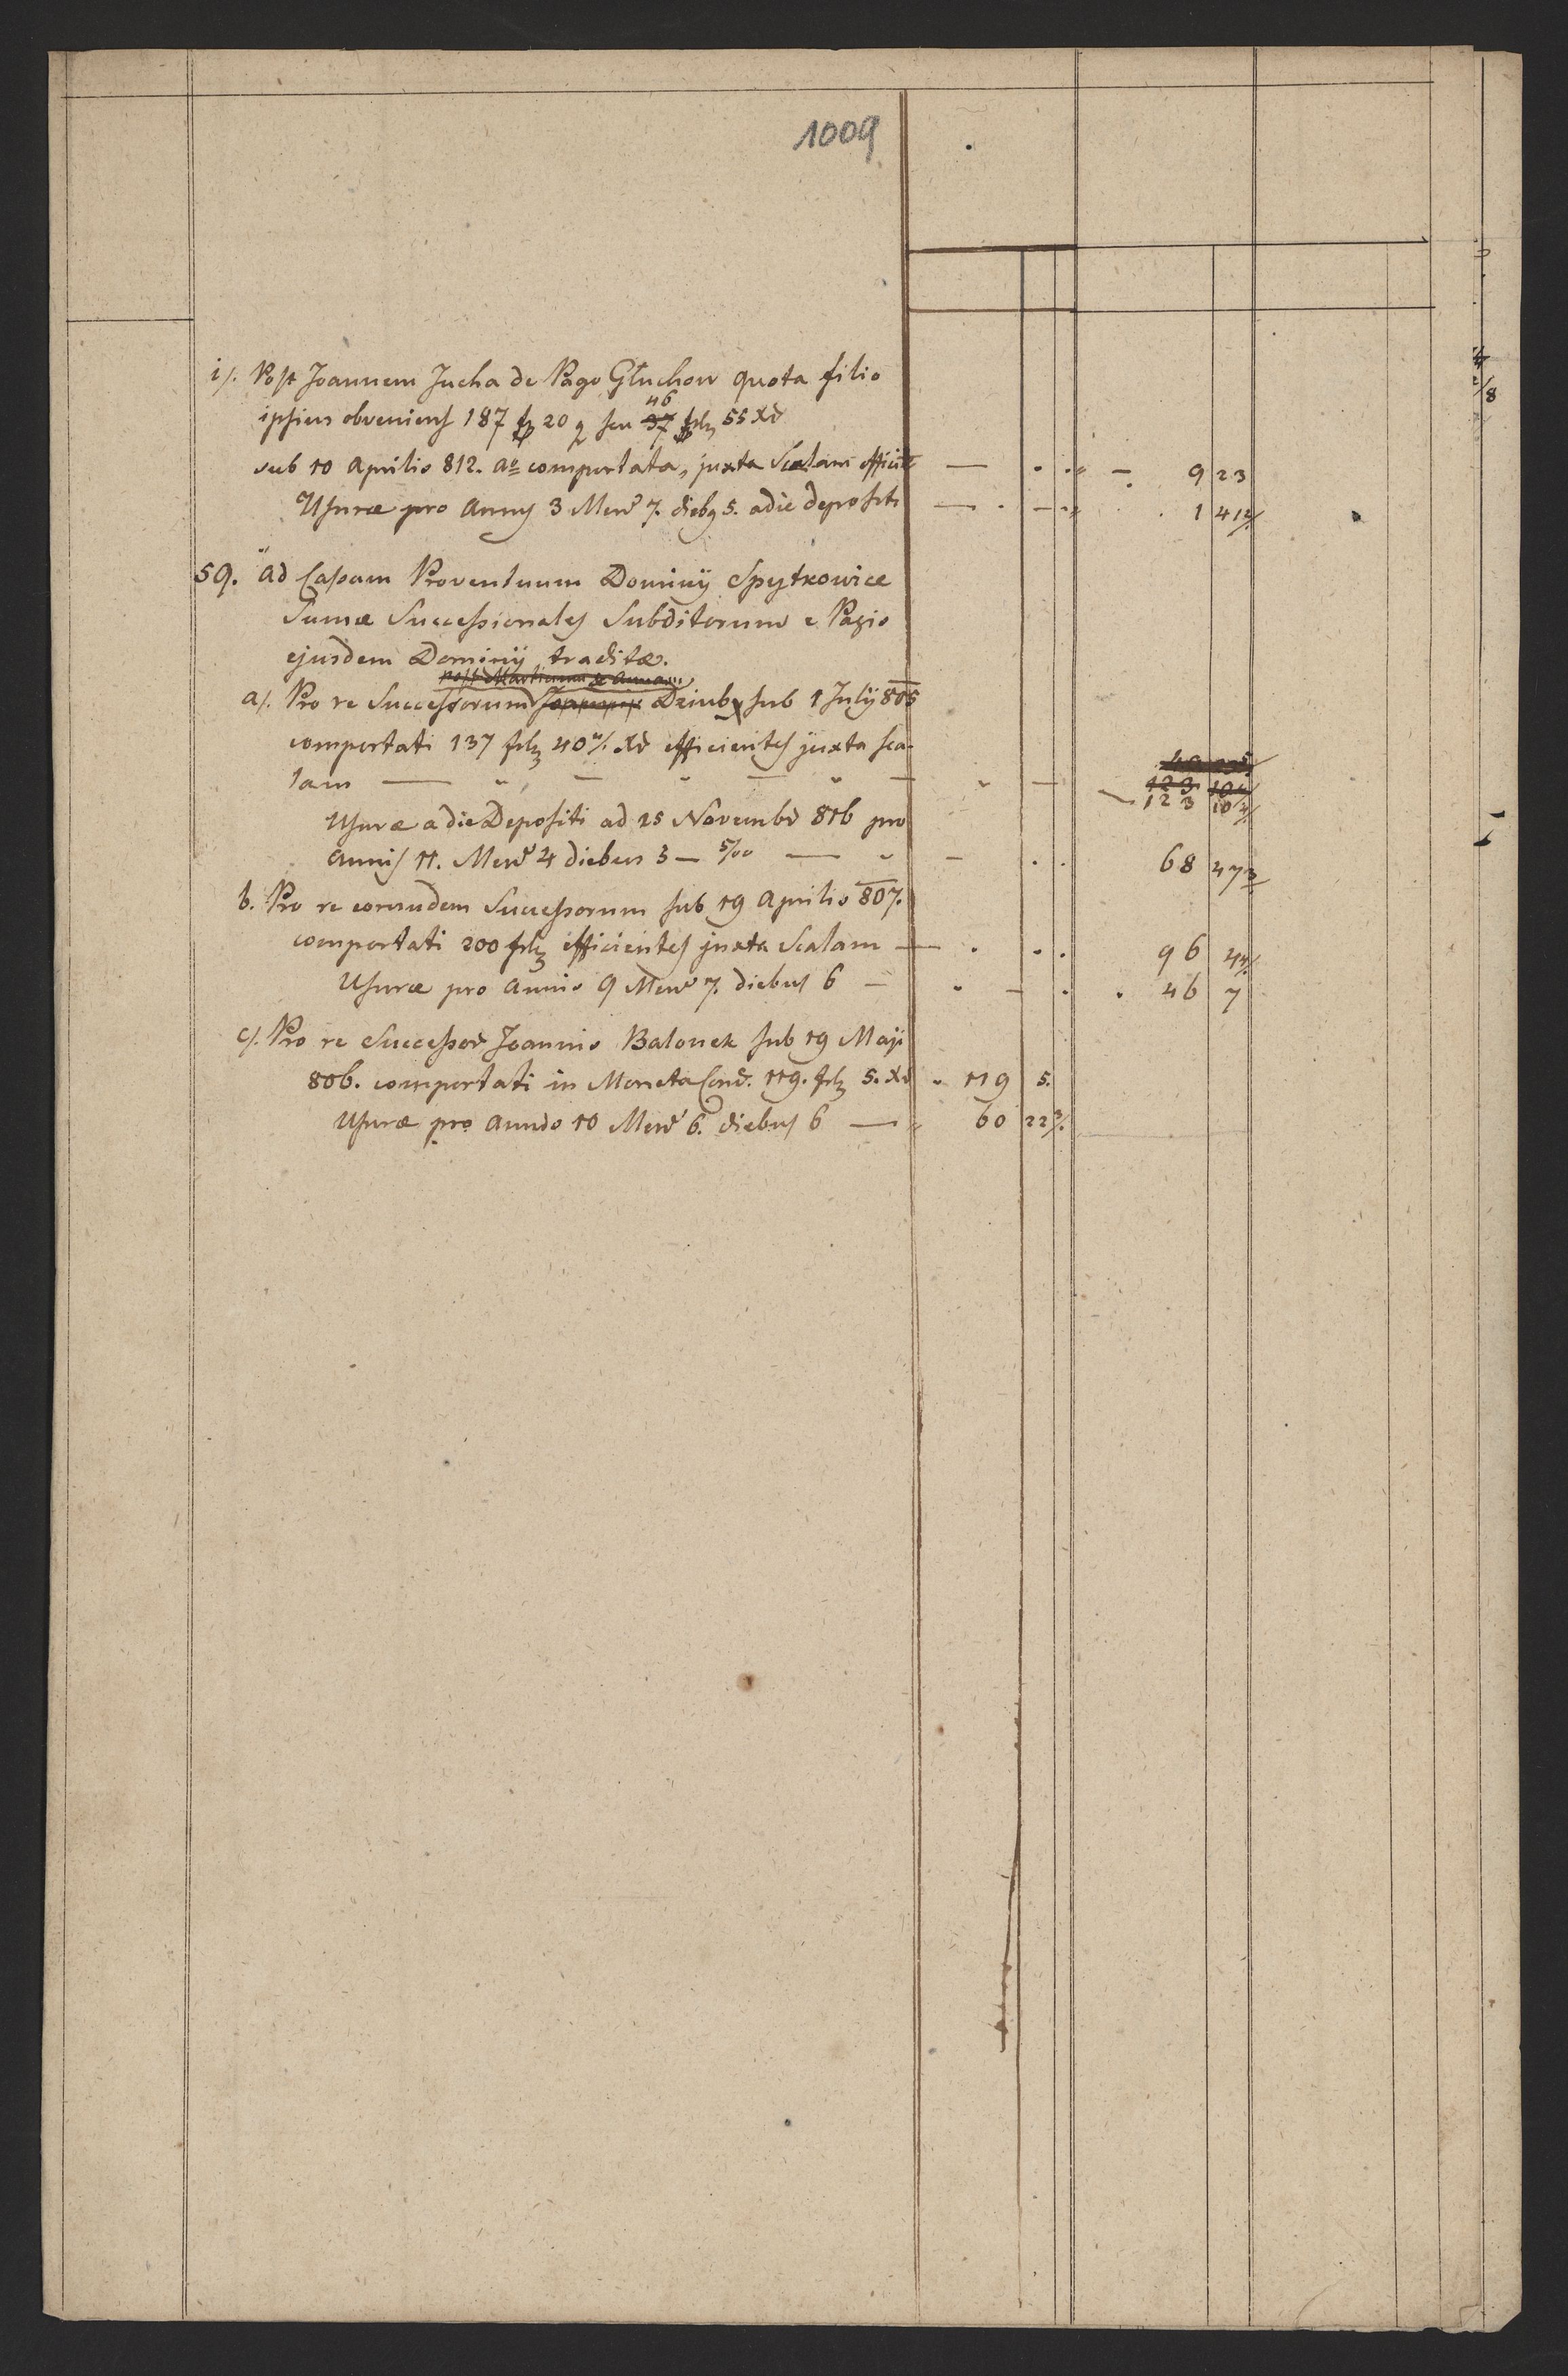 1009
i/. Post Joannem Jucha de Pago Głuchow quota filio
46
ipsius obveniens 187 fp 20 g seu 37 frh 55 Xr
sub 10 Aprilis 812. ao comportata, juxta Scalam efficit — 9 23
Usurae pro Annis 3 Mens 7. diebg 5. a die depositi — 1 41 2/
59. ad Cassam Proventuum Dominij Spytkowice
Sumae Successionales Subditorum e Pagis
ejusdem Dominij traditae.
post Martinum & Annam
a/. Pro re Successorum Joannis Dziuby sub 1 July 805
comportati 137 frh 40 4/. Xr efficientes juxta sca-
lam — 123 10
123 10 2/
Usurae a die Depositi ad 15 Novembr 816 pro
annis 11. Mens 4 diebus 3 — 5/00 — 68 47 3
b. Pro re eorundem Successorum sub 19 Aprilis 807.
comportati 200 frh efficientes juxta Scalam — 96 4
Usurae pro Annis 9 Mens 7. diebus 6 — 46 7
c/. Pro re Successor Joannis Balonek sub 19 Maji
806. comportati in Moneta Conv. 119. frh 5. Xr 119 5.
Usurae pro Annis 10 Mens 6. diebus 6 — 60 22 3/.